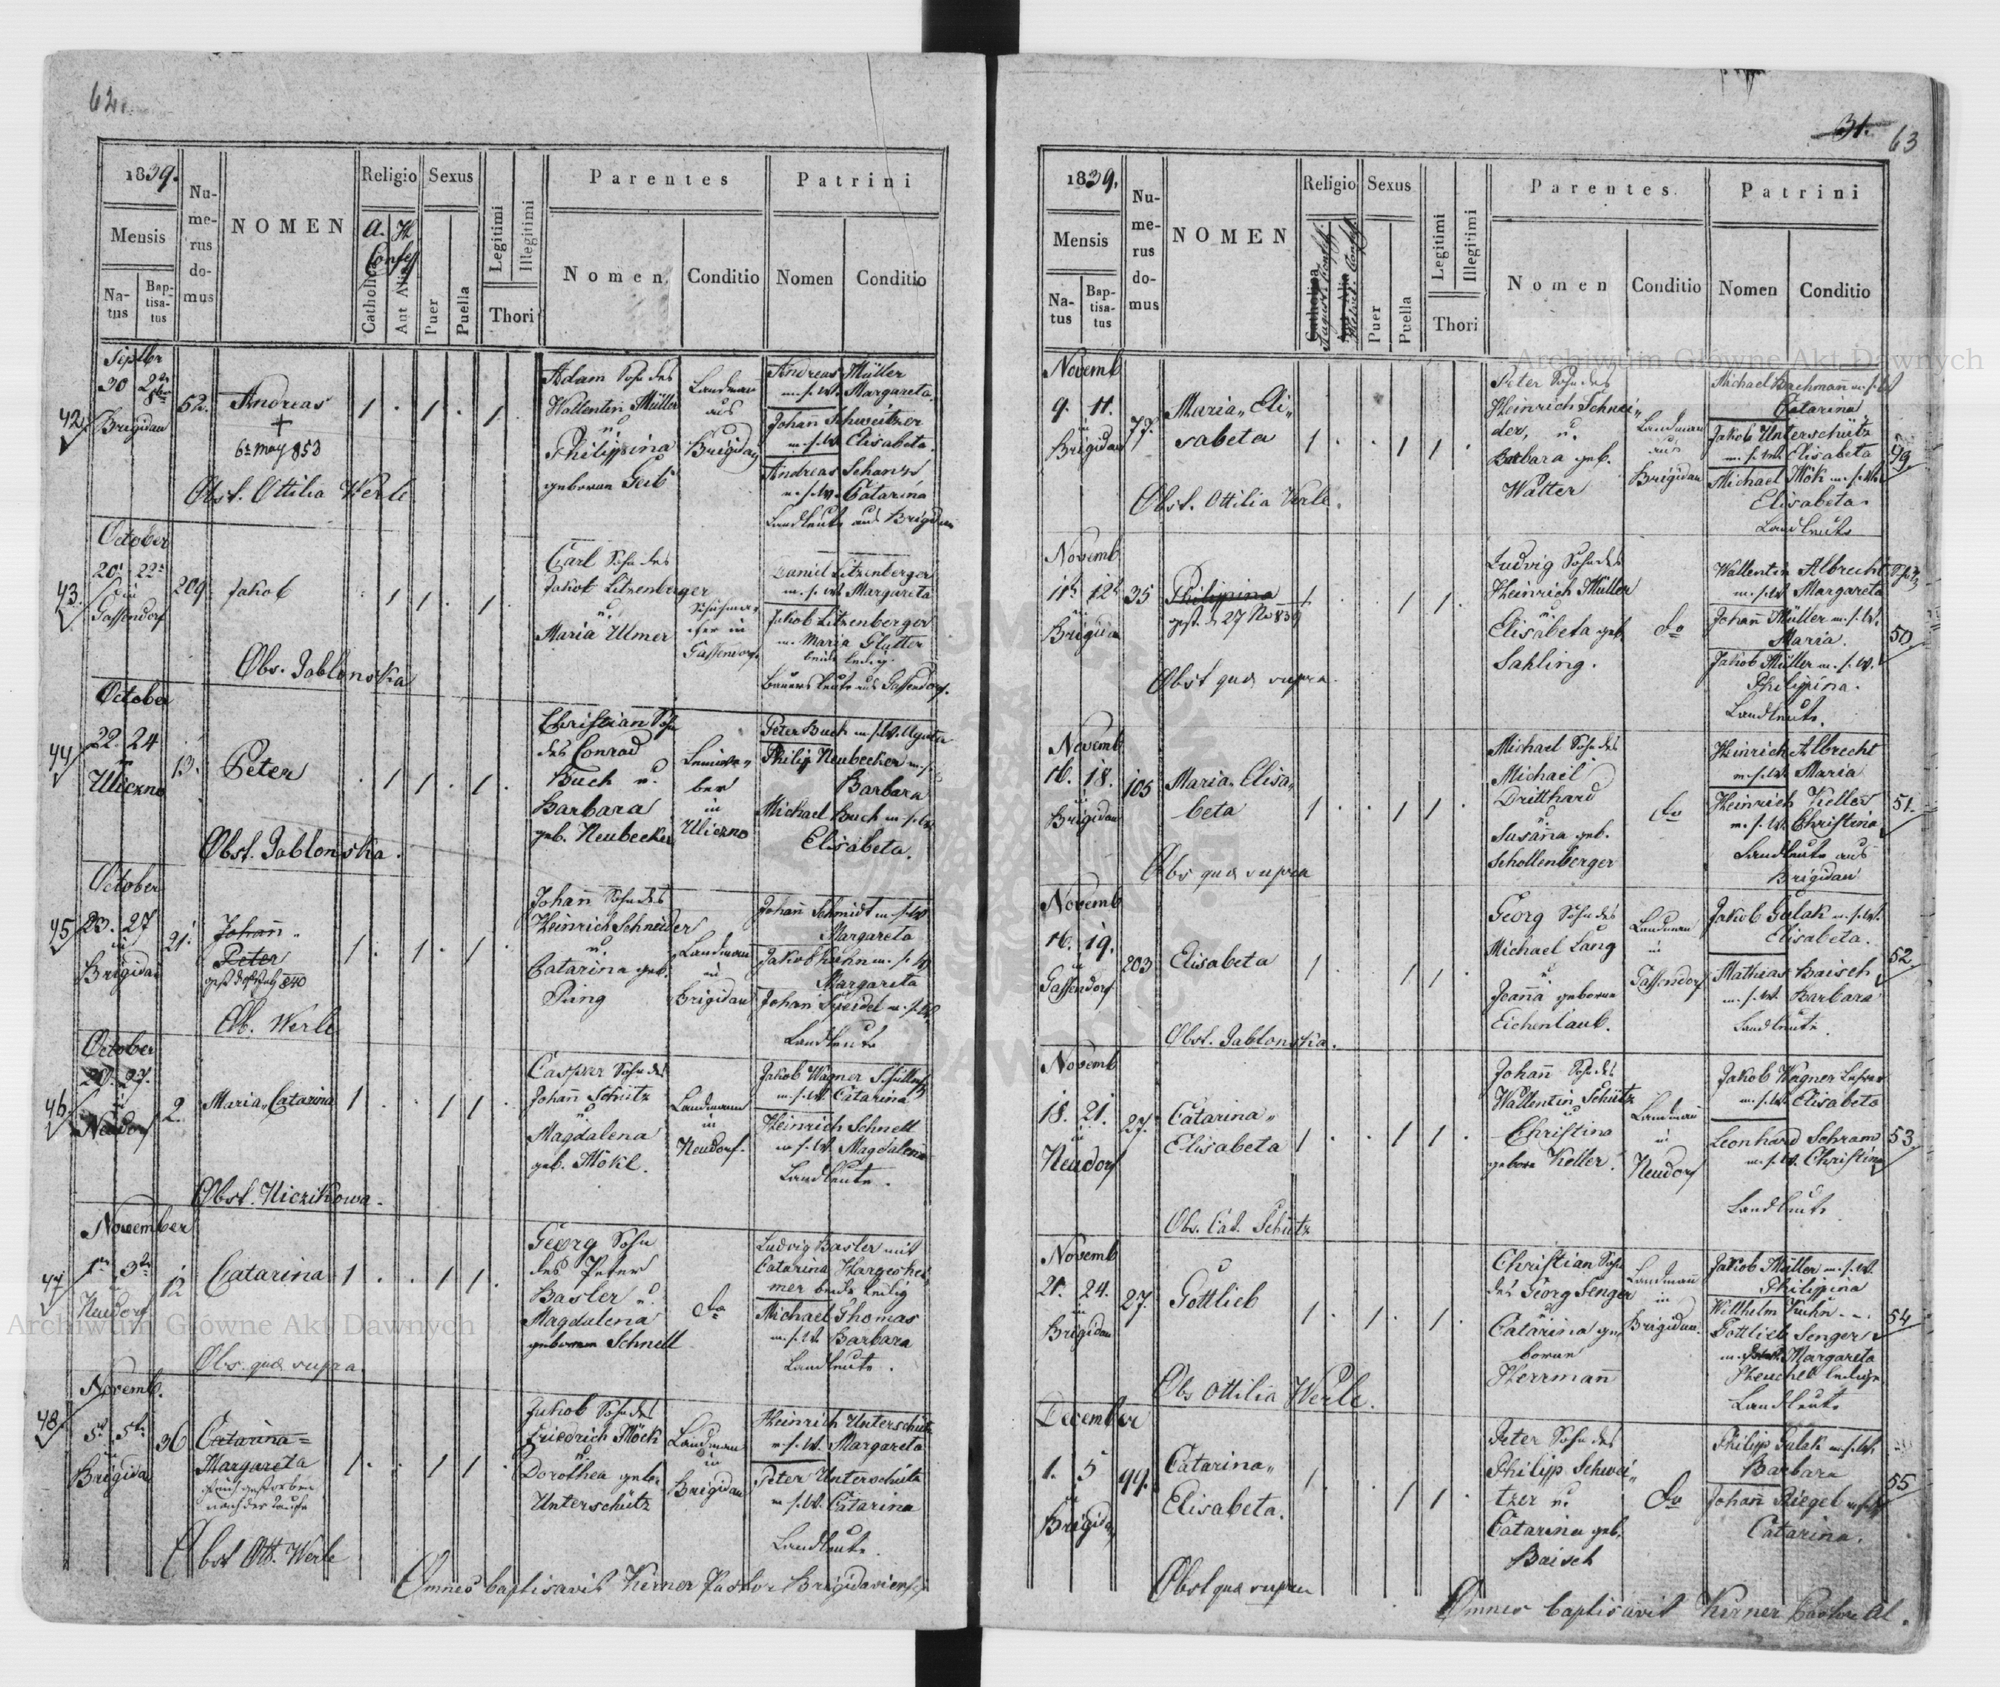 62.
1839.
Mensis
Na-
tus
Bap-
tisa-
tus
Nu-
me-
rus
do-
mus
NOMEN
Religio
A. H.
Confess
Catholica
Aut Alia
Sexus
Puer
Puella
Legitimi
Illegitimi
Thori
Parentes
Nomen
Conditio
Patrini
Nomen
Conditio
42.
Septbr
30 2ten 8br
Brigidau
52.
Andreas
+
6t May 853
Obst. Ottilia Werle
1 . 1 . 1 .
Adam Sohn des
Wallentin Müller
u.
Philippina
geboren Geib
Landman
aus
Brigidau
Andreas Müller
m. s. W. Margareta.
Johann Schweitzer
m. s. W. Elisabeta
Andreas Schanz
m. s. W. Catarina
Landleute aus Brigidau
43.
October
20t 22t
in
Gassendorf
209
Jakob
Obs. Jablonska
. 1 1 . 1 .
Carl Sohn des
Jakob Litzenberger
u.
Maria Ulmer
in
Gassendorf.
Daniel Litzenberger
m. s. W. Margareta
Jakob Litzenberger
m. Maria Glutter
beide ledig.
Bauersleute aus Gassendorf.
44
October
22. 24
in
Uliczno
13.
Peter
Obst. Jablonska.
. 1 1 . 1 .
Christian Sohn
des Conrad
Buch u.
Barbara
geb. Neubecker
in
Uliczno
Peter Buch m. s. W.
Philip Neubecker m. s.
Barbara
Michael Buch m. s. W.
Elisabeta.
45
October
23. 27
in
Brigidau
21.
Johann
Peter
Ob. Werle
1 . 1 . 1 .
Johann Sohn des
Heinrich Schneider
u.
Catarina geb.
Ring
Landman
in
Brigidau
Johann Schmidt m. s. W.
Margareta
Jakob Hahn m. s. W.
Margareta
Johan Speidel m. s. W.
Landleute
46
October
20. 27.
in
Neudorf
2.
Maria Catarina
Obst. Uiczikowa.
1 . . 1 1 .
Casper Sohn des
Johann Schütz
u.
Magdalena
geb. Mökl.
Landmann
in
Neudorf.
Jakob Wagner
m. s. W. Catarina
Heinrich Schnell
m. s. W. Magdalena
Landleute.
47
November
1ten 3ten
Neudorf
12
Catarina
Obs. quae supra
1 . . 1 1 .
Georg Sohn
des Peter
Basler u.
Magdalena
geboren Schnell
do
Ludvig Basler mit
Catarina Hargeshei-
mer beide ledig
Michael Thomas
m. s. W. Barbara
Landleute.
48
Novemb.
5t 5ten
in
Brigidau
36
Catarina=
Margareta
gestorben
nach der Taufe
Obst Ott. Werle
1 . . 1 1 .
Jakob Sohn des
Friedrich Möck
u.
Dorothea gebor
Unterschütz
Landman
in
Brigidau
Heinrich Unterschütz
m. s. W. Margareta
Peter Unterschütz
m. s. W. Catarina
Landleute.
Omnes baptisavit Kerner Pastor Brigidaviensis
31. 63
1839.
Mensis
Na-
tus
Bap-
tisa-
tus
Nu-
me-
rus
do-
mus
NOMEN
Religio
Catholica
August. Confess
Aut Alia
Helvet. Confess
Sexus
Puer
Puella
Legitimi
Illegitimi
Thori
Parentes
Nomen
Conditio
Patrini
Nomen
Conditio
Novemb
9. 11.
in
Brigidau
77.
Maria„ Eli„
sabeta
Obst. Ottilia Werle.
1 . . 1 1 .
Peter Sohn des
Heinrich Schnei„
der, u.
Barbara geb.
Walter
Landman
aus
Brigidau
Michael Bachmann m. s. W
Catarina
Jakob Unterschütz
m. s. W. Elisabeta
Michael Mök m. s. W.
Elisabeta.
Landleute
49
Novemb
11t 12t
in
Brigidau
35
Philippina
gest. d. 27 No 839
Obst quae supra
1 . . 1 1 .
Ludvig Sohn des
Heinrich Müller
u.
Elisabeta geb.
Sahling.
do
Wallentin Albrecht
m. s. W. Margareta
Johann Müller m. s. W.
Maria.
Jakob Müller m. s. W.
Philipina.
Landleute.
50.
Novemb
16. 18.
in
Brigidau
105
Maria„ Elisa„
beta
Obs quae supra
1 . . 1 1 .
Michael Sohn des
Michael
Dritthard
u.
Susanna geb.
Schollenberger
do
Heinrich Albrecht
m. s. W. Maria
Heinrich Keller
m. s. W. Christina
Landleute aus
Brigidau
51.
Novemb
16. 19.
in
Gassendorf
203
Elisabeta
Obst. Jablonska.
1 . . 1 1 .
Georg Sohn des
Michael Lang
u.
Joanna geboren
Eichenlaub.
Landman
in
Gassendorf
Jakob Gulak m. s. W.
Elisabeta.
Mathias Baisch
m. s. W. Barbara
Landleute.
52.
Novemb
18. 21.
in
Neudorf
27.
Catarina„
Elisabeta
Obs. Cat. Schütz
1 . . 1 1 .
Johann Sohn des
Wallentin Schütz
u
Christina
geborn Keller.
Landman
in
Neudorf
Jakob Wagner
m. s. W. Elisabeta
Leonhard Schram
m. s. W. Christina
Landleute.
53.
Novemb
21. 24.
in
Brigidau
27.
Gottlieb
Obs Ottilia Werle.
1 . 1 . 1 .
Christian Sohn
des Georg Senger
u
Catarina ge„
boren
Herrmann
Landman
in
Brigidau.
Jakob Müller m. s. W.
Philippina
Willhelm Kuhn
Gottlieb Senger
m. Margareta
Heuchel ledige
Landleute
54
December
1. 5
in
Brigidau
99.
Catarina„
Elisabeta.
Obst quae supra
1 . . 1 1 .
Peter Sohn des
Philipp Schwei„
tzer u.
Catarina geb.
Baisch
do
Philipp Gulak m. s. W.
Barbara
Johann Riegel m. s. W
Catarina.
55
Omnes baptisavit Kerner Pastor Al.
Archiwum Główne Akt Dawnych
Archiwum Główne Akt Dawnych